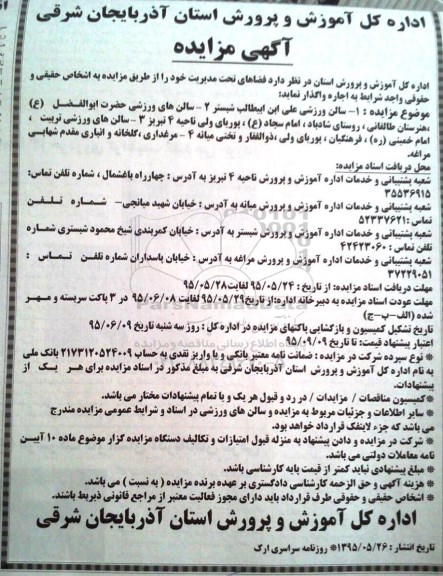 اداره کل آموزش و پرورش استان آذربایجان شرقی
آگهی مزایده
اداره کل آموزش و پرورش استان در نظر دارد فضاهای تحت مدیریت خود را از طریق مزایده به اشخاص حقیقی و
حقوقی واجد شرایط به اجاره واگذار نماید:
موضوع مزایده : ۱- سالن ورزشی علی ابن ابیطالب شبستر ۲ - سالن های ورزشی حضرت ابوالفضل (ع)
،هنرستان طالقانی ، روستای شادباد ، امام سجاد (ع) ، پوریای ولی ناحیه ۴ تبریز ۳ -سالن های ورزشی تربیت ،
امام خمینی (ره) ، فرهنگیان ، پوریای ولی ،ذوالفقار و تختی میانه ۴ - مرغداری ،گلخانه و انباری مقدم شهابی
مراغه.
محل دریافت اسناد مزایده:
شعبه پشتیبانی و خدمات اداره آموزش و پرورش ناحیه ۴ تبریز به آدرس : چهارراه باغشمال ، شماره تلفن تماس:
۳۵۵۳۶۹۱۵
شعبه پشتیبانی و خدمات اداره آموزش و پرورش میانه به آدرس : خیابان شهید میانجی- شماره تلفن
تماس:۵۲۳۳۷۶۲۱
شعبه پشتیبانی و خدمات اداره آموزش و پرورش شبستر به آدرس : خیابان کمربندی شیخ محمود شبستری شماره
تلفن تماس : ۴۲۴۲۳۰۶۰
شعبه پشتیبانی و خدمات اداره آموزش و پرورش مراغه به آدرس : خیابان پاسداران شماره تلفن تماس :
۳۷۲۲۹۰۵۱
مهلت دریافت اسناد مزایده: از تاریخ : ۹۵/۰۵/۲۴ لغایت ۹۵/۰۵/۲۸
مهلت عودت اسناد مزایده به دبیرخانه اداره:از تاریخ ۹۵/۰۵/۲۹ لغایت ۹۵/۰۶/۰۸ در ۳ پاکت سربسته و مهر
شده (الف-ب-ج)
تاریخ تشکیل کمیسیون و بازگشایی پاکتهای مزایده در اداره کل : روز سه شنبه تاریخ ۹۵/۰۶/۰۹
اعتبار پیشنهاد قیمت: تا تاریخ ۹۵/۰۹/۰۹
* نوع سپرده شرکت در مزایده : ضمانت نامه معتبر بانکی و یا واریز نقدی به حساب ۲۱۷۳۱۲۰۵۲۴۰۰۹ بانک ملی
به نام اداره کل آموزش و پرورش استان آذربایجان شرقی به مبلغ مذکور در اسناد مزایده برای هر یک از
پیشنهادات.
*کمیسیون مناقصات / مزایدات / در رد و قبول هر یک و یا تمام پیشنهادات مختار می باشد.
* سایر اطلاعات و جزئیات مربوط به مزایده و سالن های ورزشی در اسناد و شرایط عمومی مزایده مندرج
می باشد که جزء لاینفک قرارداد خواهد بود.
* شرکت در مزایده و دادن پیشنهاد به منزله قبول امتیازات و تکالیف دستگاه مزایده گزار موضوع ماده ۱۰ آیین
نامه معاملات دولتی می باشد.
* مبلغ پیشنهادی نباید کمتر از قیمت پایه کارشناسی باشد.
* هزینه آگهی و حق الزحمه کارشناسی دادگستری بر عهده برنده مزایده ( به نسبت ) می باشد.
* اشخاص حقیقی و حقوقی طرف قرارداد باید دارای مجوز فعالیت معتبر از مراجع قانونی ذیربط باشند.
اداره کل آموزش و پرورش استان آذربایجان شرقی
تاریخ انتشار : ۱۳۹۵/۰۵/۲۶* روزنامه سراسری ارک